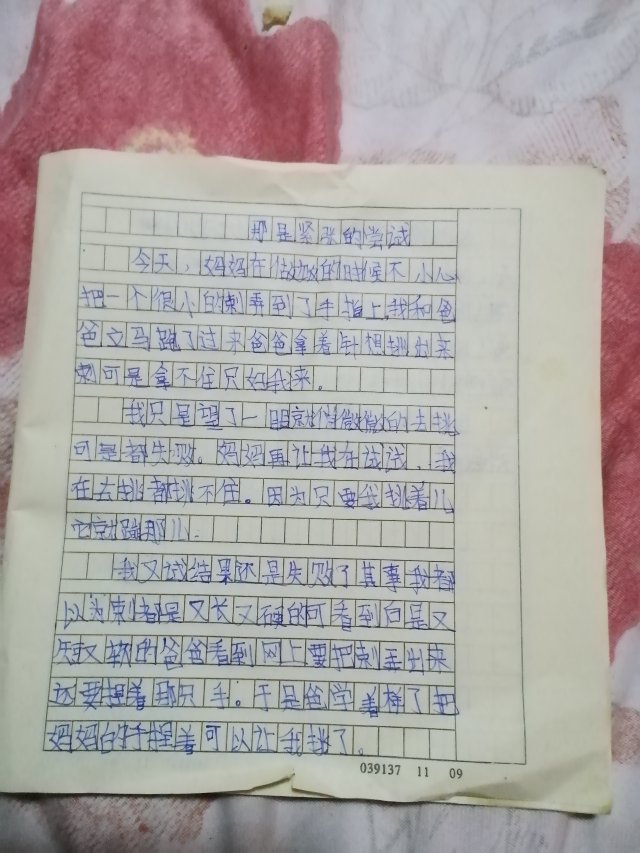 那是紧张的尝试
今天，妈妈在做饭的时侯不小心
把一个很小的刺弄到了手指上我和爸
爸立马跑了过来爸爸拿着针想挑出来
可是拿不住只好我来。
我只是望了一眼就微微的去挑
可是都失败。妈妈再让我在试试，我
在去挑都挑不住。因为只要我挑着儿
它就蹦那儿.
我又试结果还是失败了其事我都
以为刺都是又长又硬的可看到白是又
短又软的爸爸看到网上要把刺弄出来
还要捏着那只手。于是爸学着样了把
妈妈的手捏着可以让我挑了。
039137 11 09